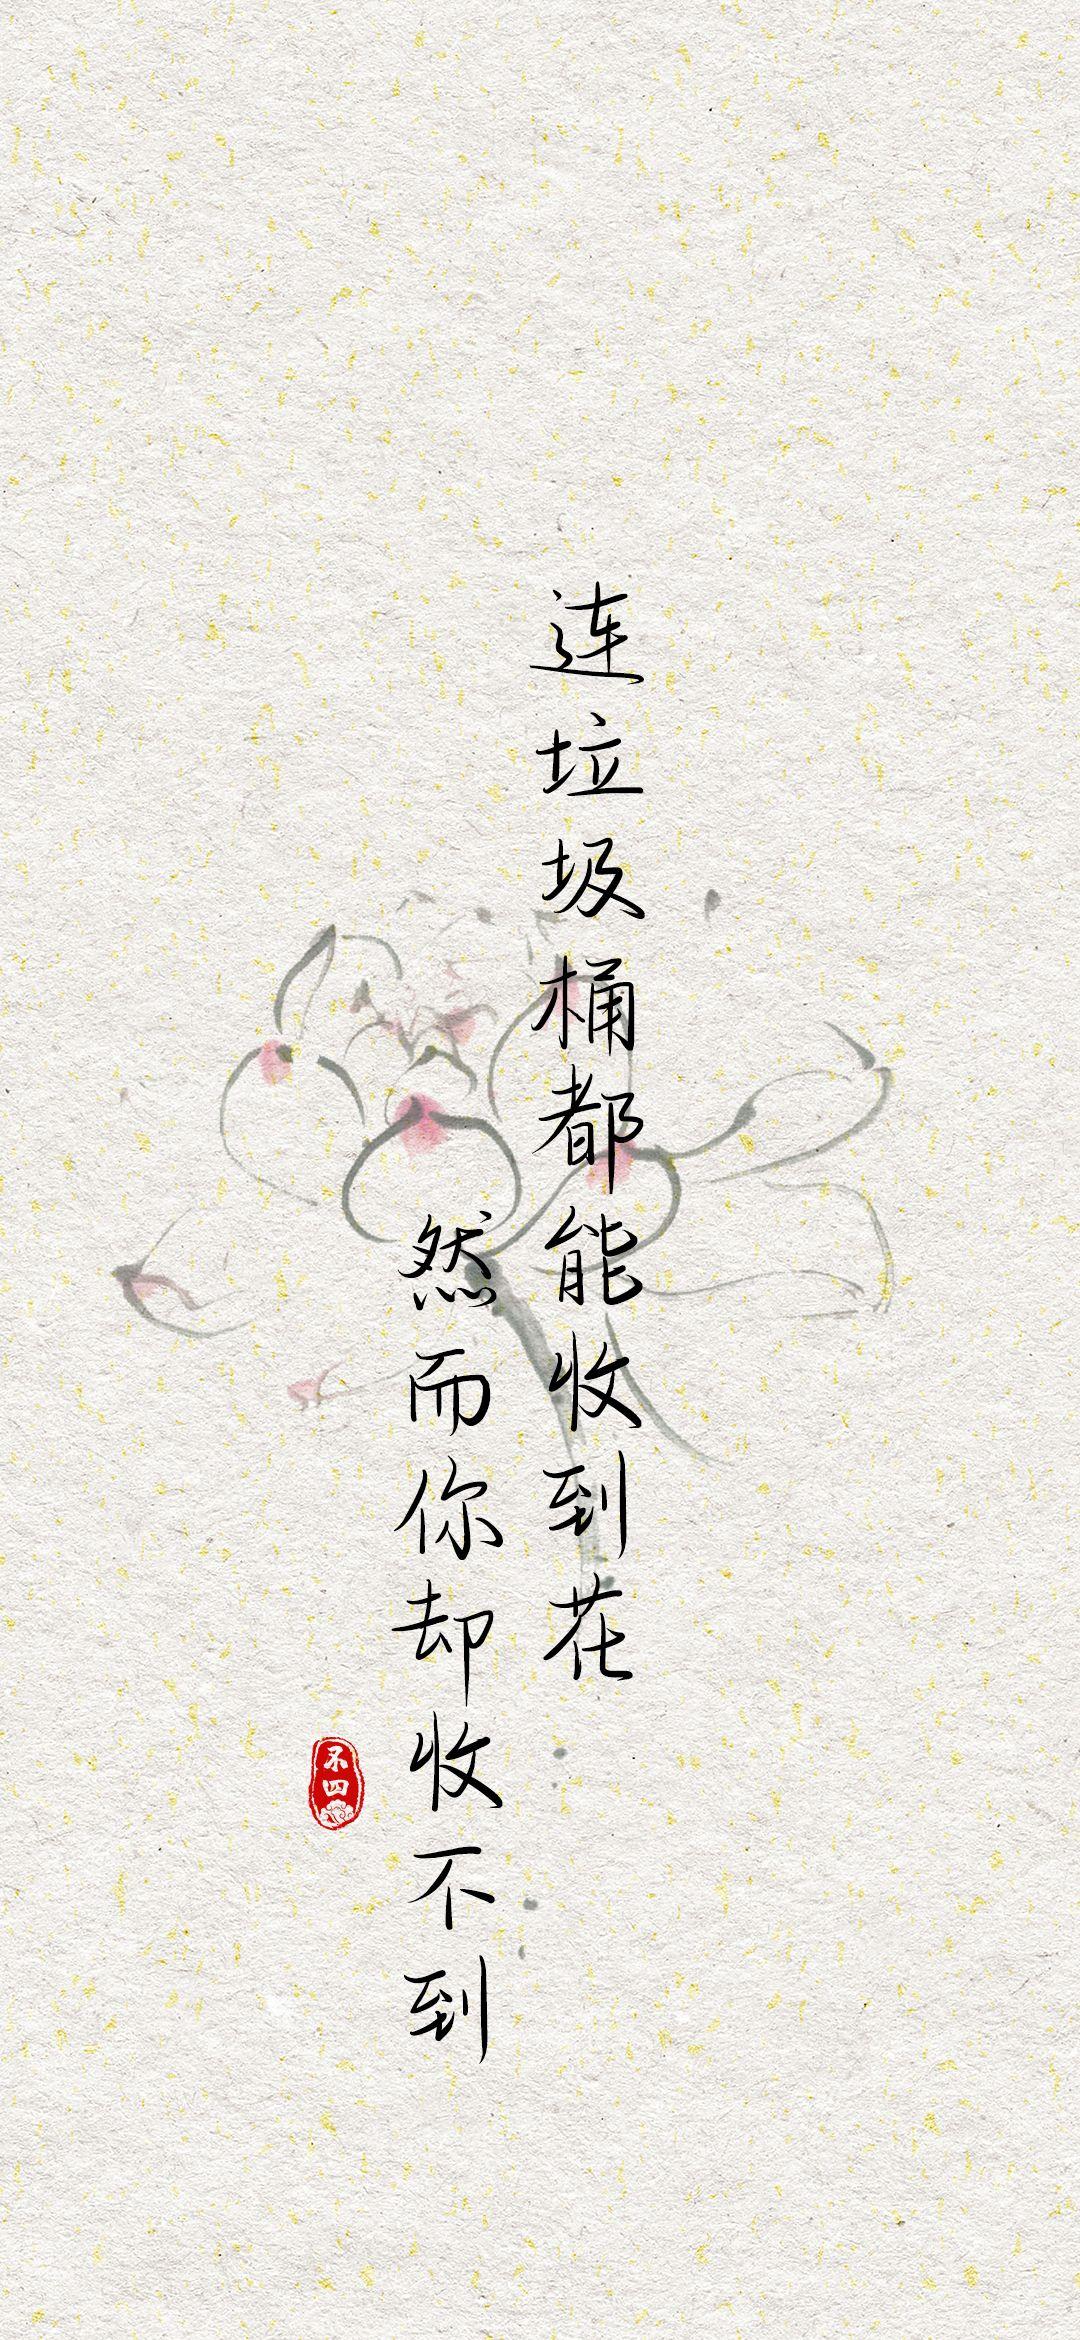 连垃圾桶都能收到花
然而你却收不到
不四